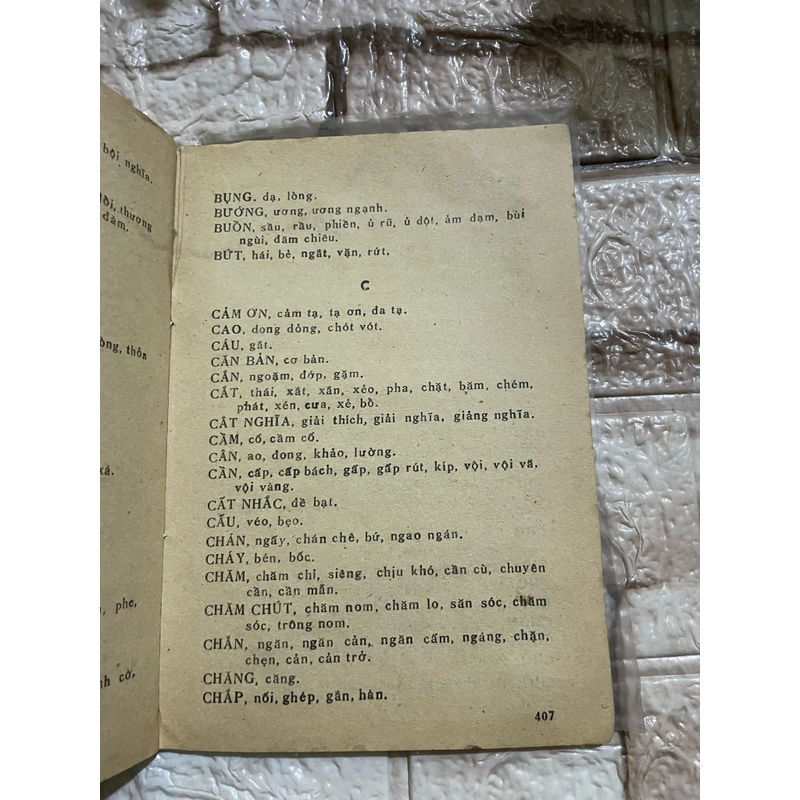 bội nghĩa.
thương
dảm.
òng, thỏa
xá.
phe,
cờ,
BỤNG, dạ, lòng.
BƯỚNG, ương, ương ngạnh.
BUỒN, sầu, rầu, phiền, ủ rũ, ủ dột, ảm đạm, bùi
ngùi, đăm chiêu.
BỨT, hái, bẻ, ngắt, vặn, rứt.
C
CẢM ƠN, cảm tạ, tạ ơn, đa tạ.
CAO, dong dỏng, chót vót.
CÁU, gắt.
CĂN BẢN, cơ bản.
CẮN, ngoạm, đớp, gặm.
CẮT, thái, xắt, xắn, xẻo, pha, chặt, băm, chém,
phát, xén, cưa, xẻ, bổ.
CẮT NGHĨA, giải thích, giải nghĩa, giảng nghĩa.
CẦM, cố, cầm cố.
CÂN, ao, đong, khảo, lường.
CẦN, cấp, cấp bách, gấp, gấp rút, kíp, vội, vội vã,
vội vàng.
CẤT NHẮC, đề bạt.
CẤU, véo, bẹo.
CHÁN, ngấy, chán chê, bứ, ngao ngán.
CHÁY, bén, bốc.
CHĂM, chăm chỉ, siêng, chịu khó, cần cù, chuyên
cần, cần mẫn.
CHĂM CHÚT, chăm nom, chăm lo, săn sóc, chăm
sóc, trông nom.
CHẮN, ngăn, ngăn cản, ngăn cấm, ngáng, chặn,
chẹn, cản, cản trở.
CHĂNG, căng.
CHẮP, nối, ghép, gắn, hàn.
407